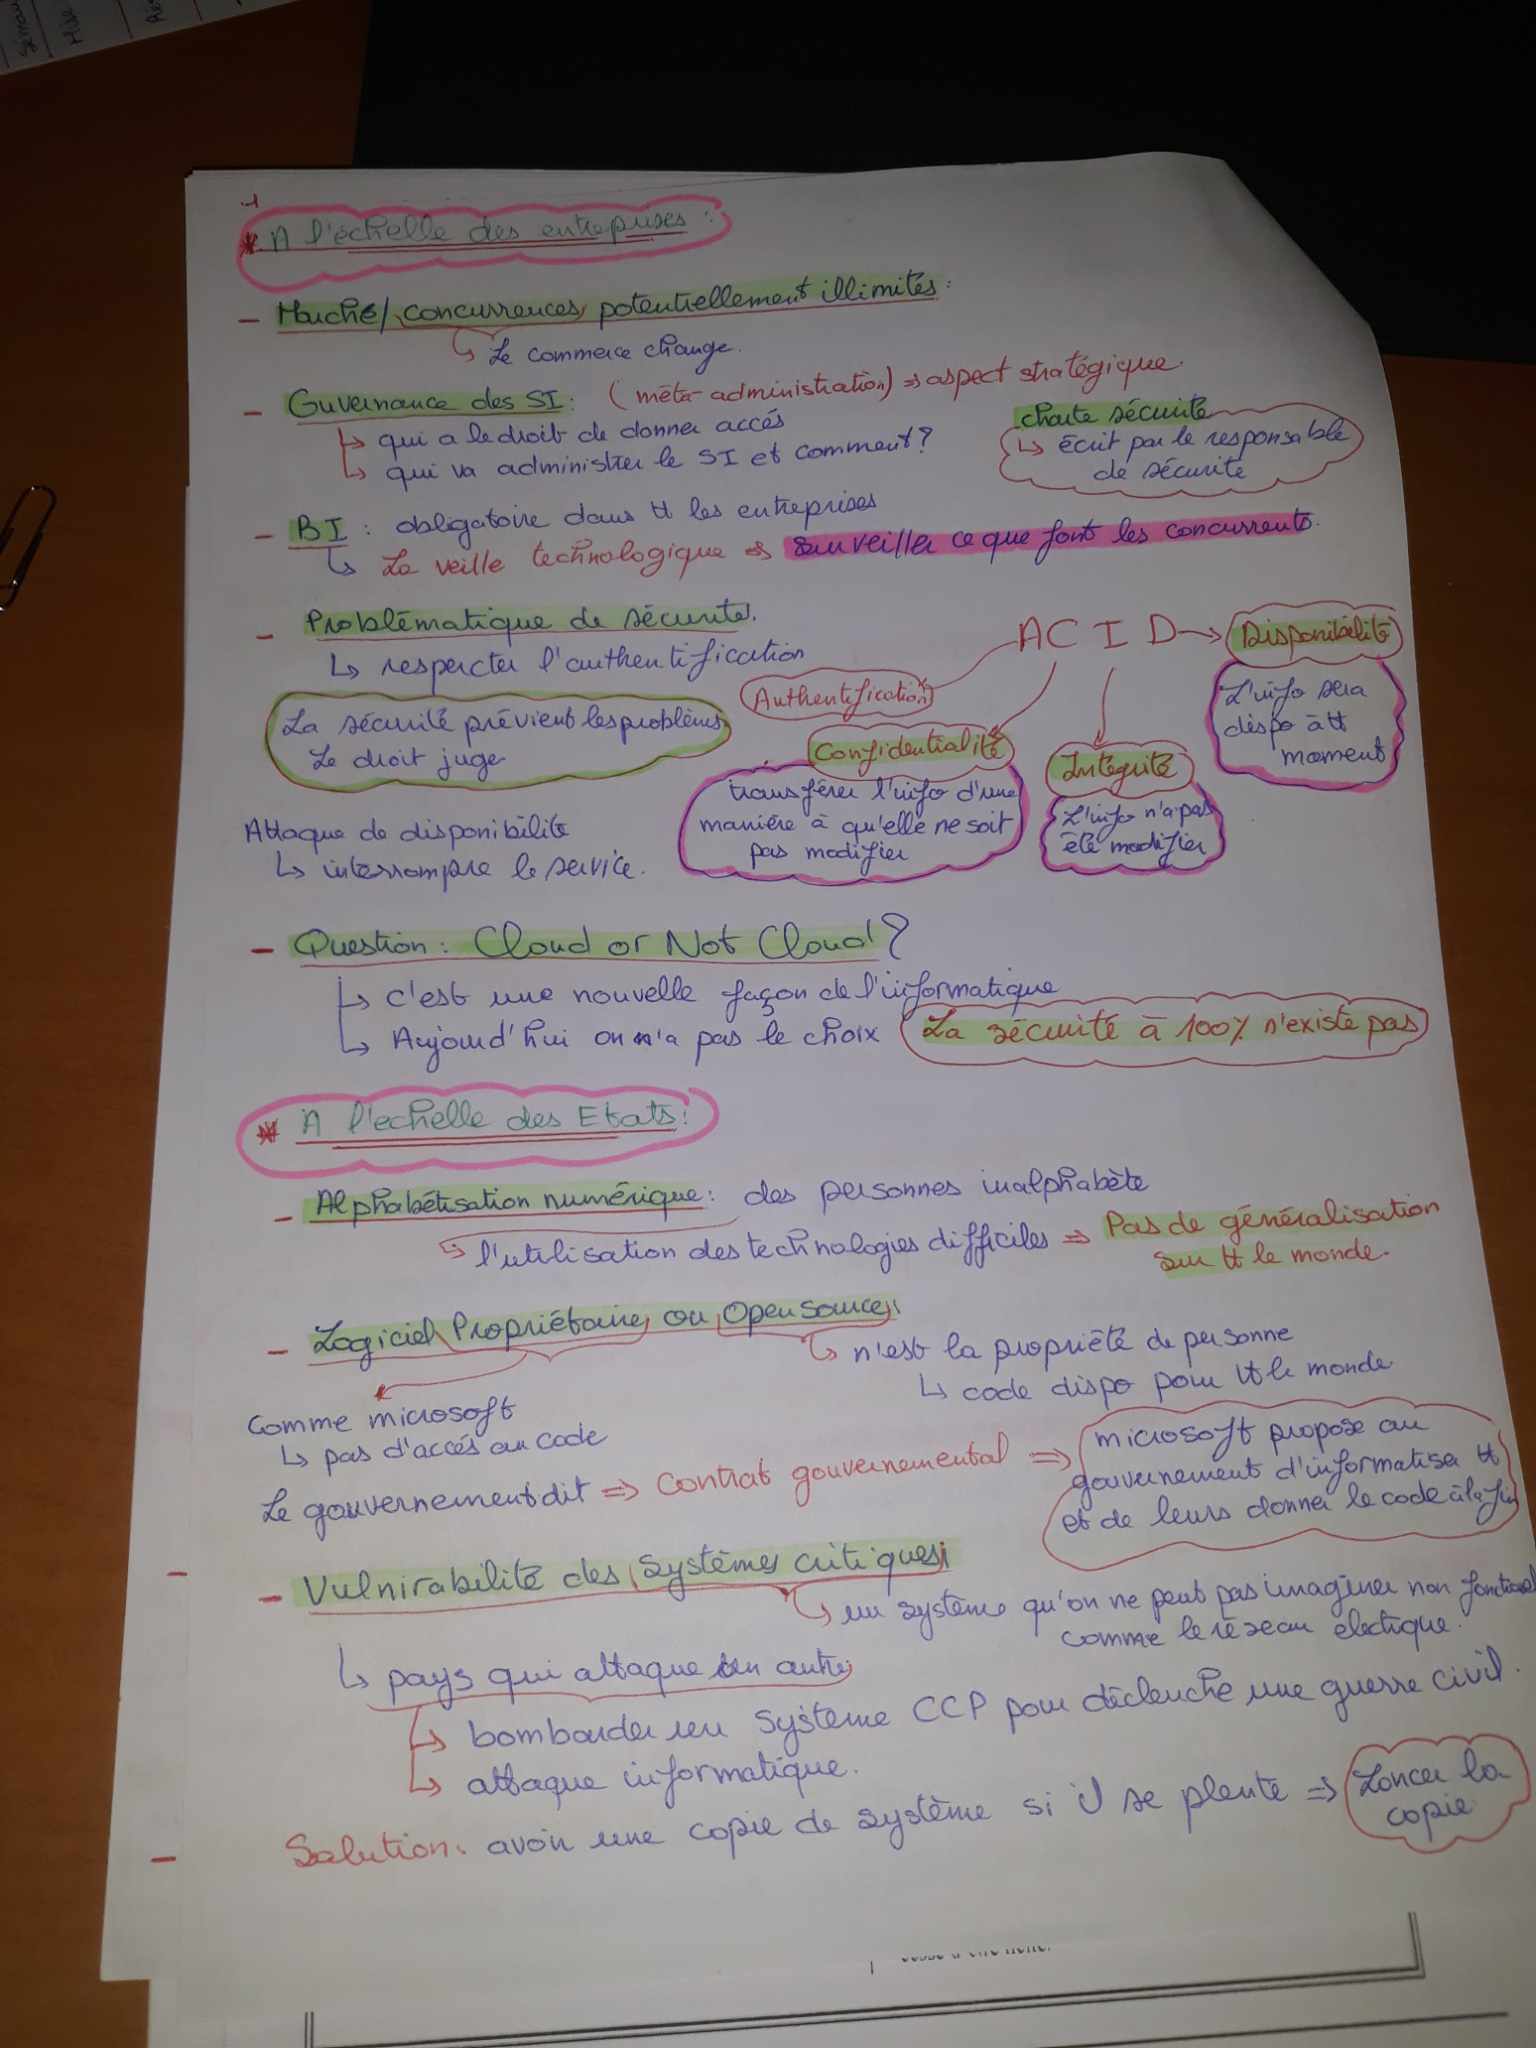 * A l'échelle des entreprises :
- Marché/ concurrences potentiellement illimités :
↳ Le commerce change.
- Guvernance des SI : (méta-administration) ⇒ aspect stratégique.
↳ qui a le droit de donner accés
↳ qui va administrer le SI et comment ?
charte sécurité
↳ écrit par le responsable
de sécurité
- BI : obligatoire dans tt les entreprises
↳ La veille technologique ⇒ surveiller ce que font les concurrents.
- Problématique de sécurité.
↳ respecter l'authentification
La sécurité prévient les problèmes
Le droit juge
A C I D → Disponibilité
L'info sera
dispo à tt
moment
Authentification
Confidentialité
transférer l'info d'une
manière à qu'elle ne soit
pas modifier
Intégrité
L'info n'a pas
été modifier
Attaque de disponibilité
↳ interrompre le service.
- Question : Cloud or Not Cloud ?
↳ c'est une nouvelle façon de l'informatique
↳ Aujourd'hui on n'a pas le choix
La sécurité à 100% n'existe pas
* A l'echelle des Etats :
- Alphabétisation numérique : des personnes inalphabète
↳ l'utilisation des technologies difficiles ⇒ Pas de généralisation
sur tt le monde.
- Logiciel Propriétaire ou Open source :
↳ n'est la propriété de personne
↳ code dispo pour tt le monde
Comme microsoft
↳ pas d'accés au code
Le gouvernement dit ⇒ contrat gouvernemental ⇒
microsoft propose au
gouvernement d'informatiser tt
et de leurs donner le code à la fin
- Vulnirabilité des systèmes critiques
↳ un système qu'on ne peut pas imaginer non fonctionel
comme le réseau electrique.
↳ pays qui attaque un autre
↳ bombarder un système CCP pour déclenche une guerre civil.
↳ attaque informatique.
Solution : avoir une copie de système si il se plente ⇒ Loncer la
copie